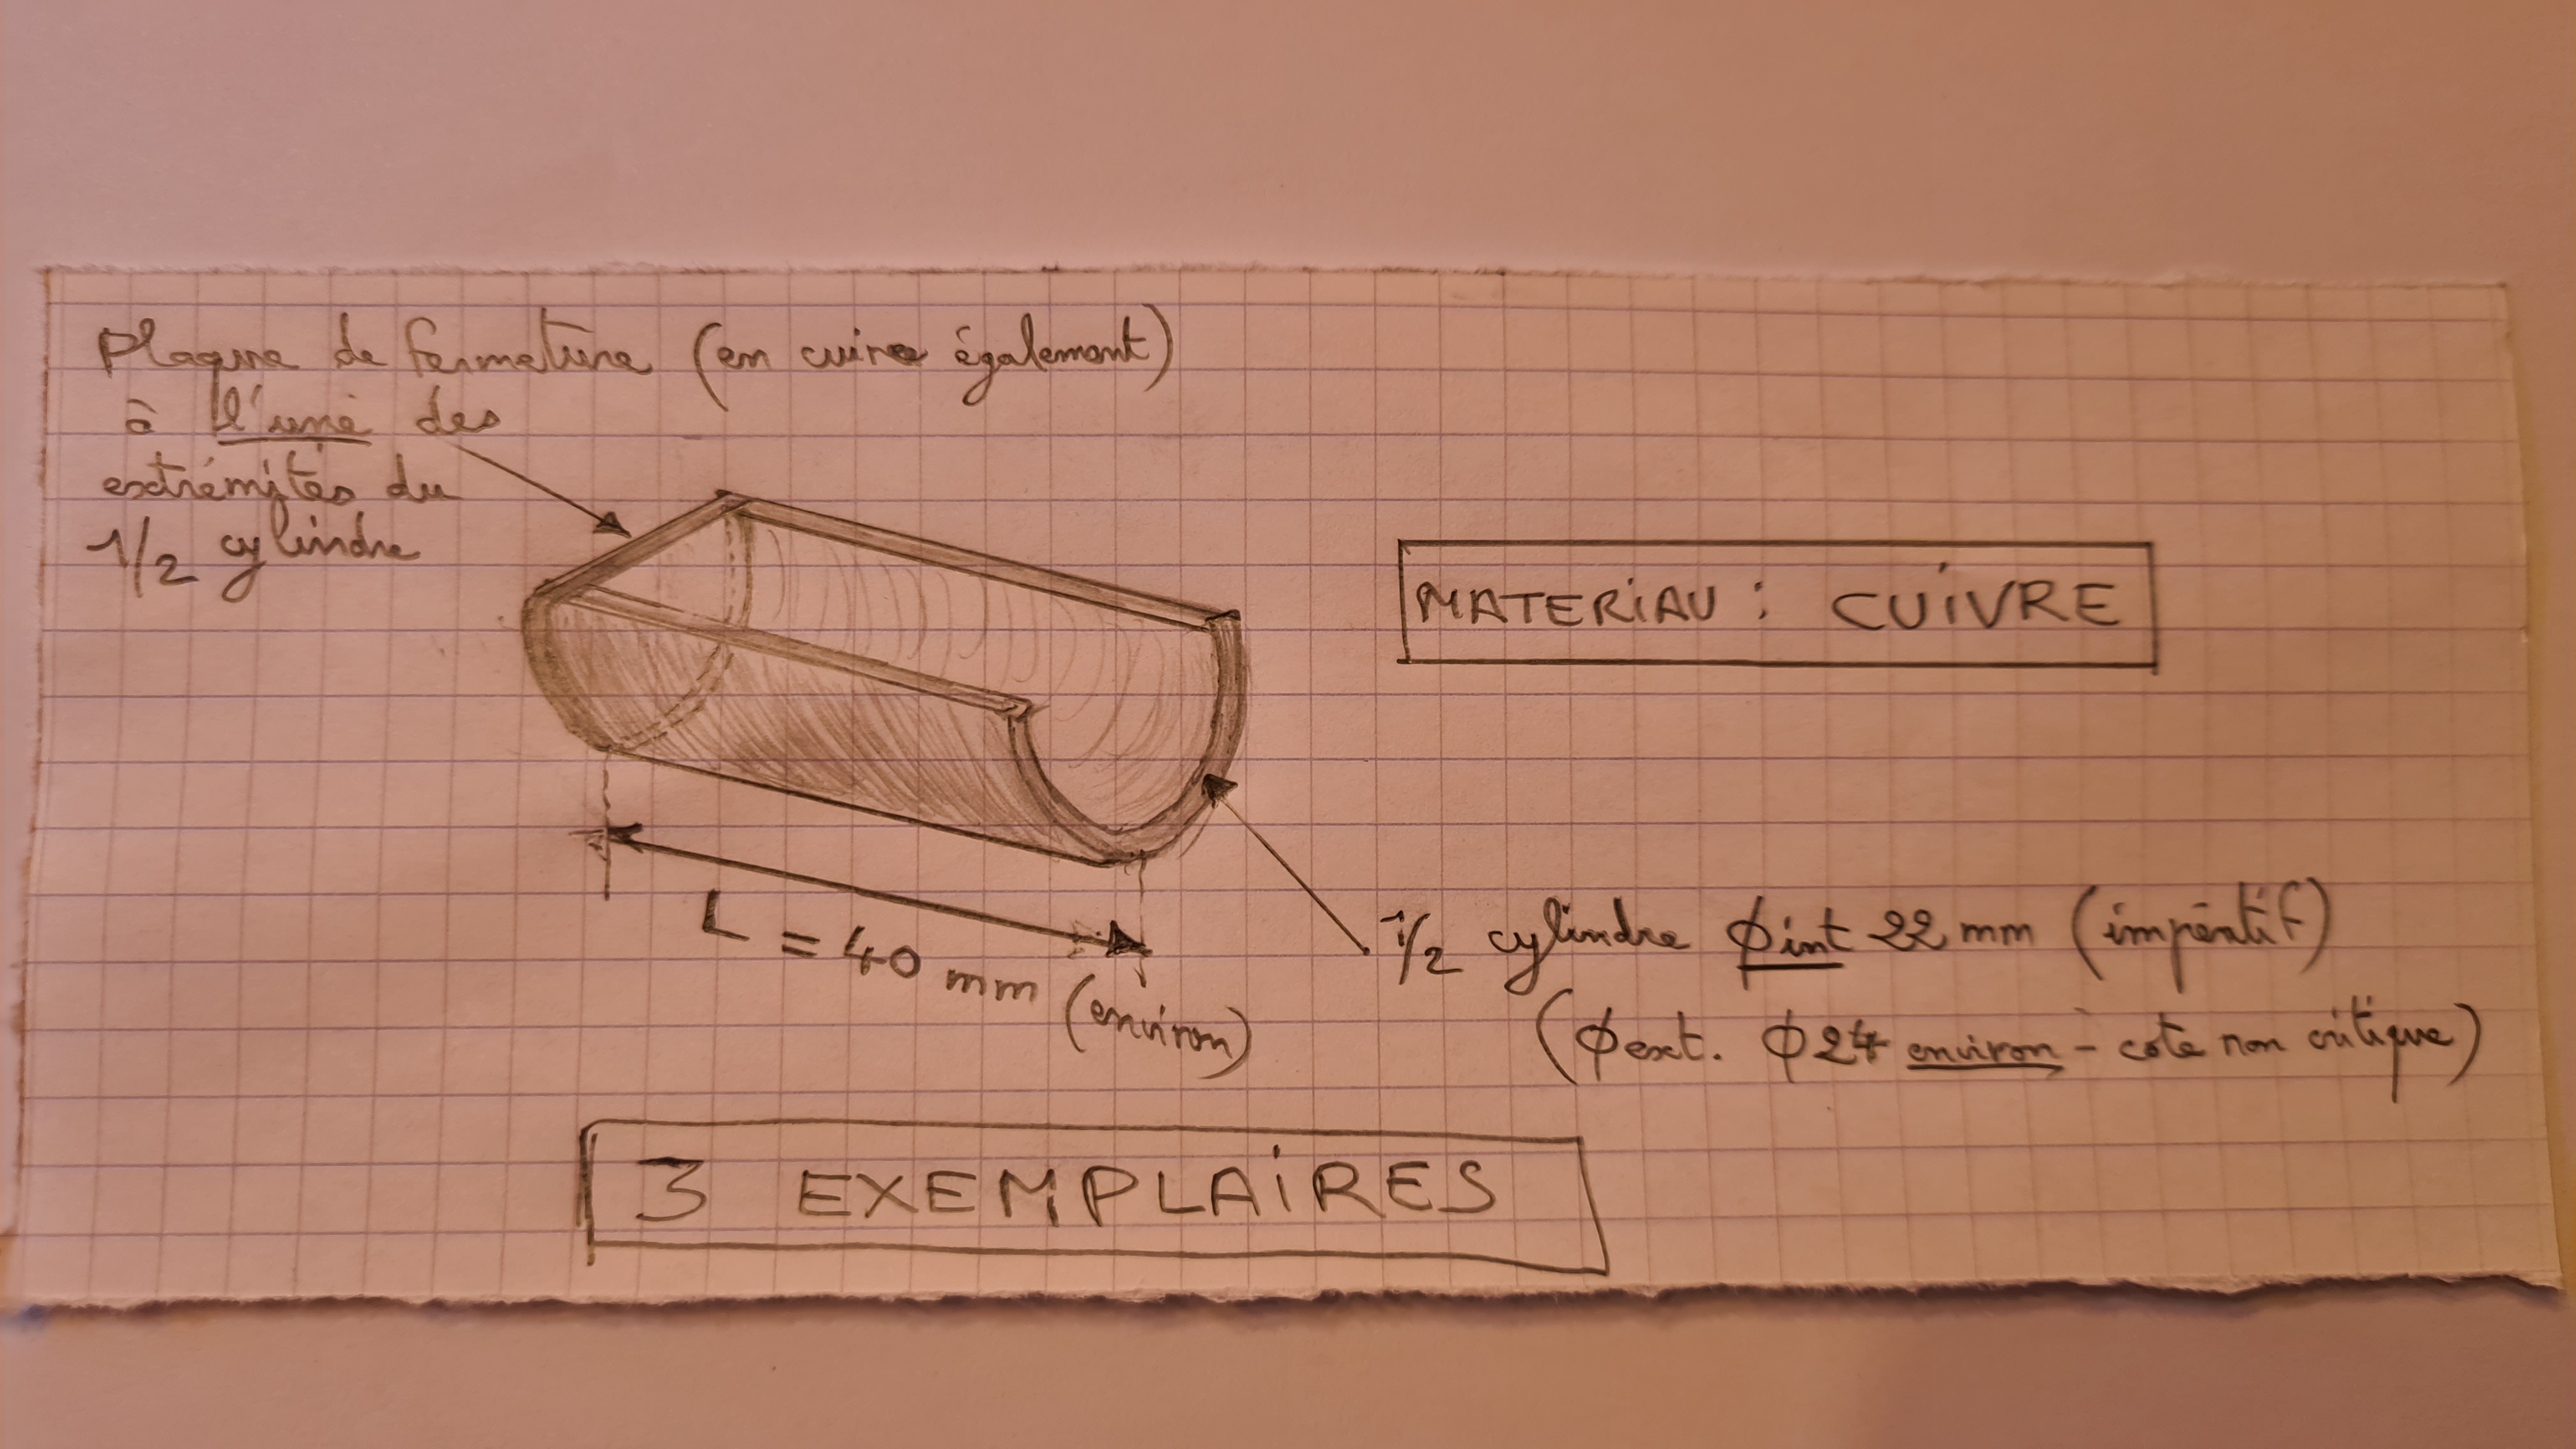 Plaque de fermeture (en cuivre également)
à l'une des
extrémités du
1/2 cylindre
MATERIAU : CUIVRE
L = 40 mm (environ)
1/2 cylindre ϕint 22 mm (impératif)
(ϕext. ϕ24 environ - cote non critique)
3 EXEMPLAIRES